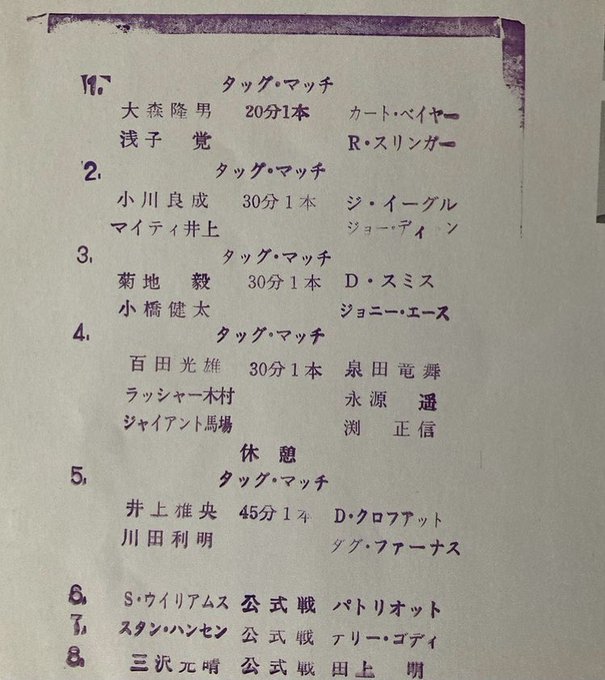 1. タッグ・マッチ
大森隆男 20分1本 カート・ベイヤー
浅子 覚 R・スリンガー
2. タッグ・マッチ
小川良成 30分1本 ジ・イーグル
マイティ井上 ジョー・ディートン
3. タッグ・マッチ
菊地 毅 30分1本 D・スミス
小橋健太 ジョニー・エース
4. タッグ・マッチ
百田光雄 30分1本 泉田竜舞
ラッシャー木村 永源 遥
ジャイアント馬場 渕 正信
休憩
5. タッグ・マッチ
井上雅央 45分1本 D・クロファット
川田利明 ダグ・ファーナス
6. S・ウイリアムス 公式戦 パトリオット
7. スタン・ハンセン 公式戦 テリー・ゴディ
8. 三沢光晴 公式戦 田上 明